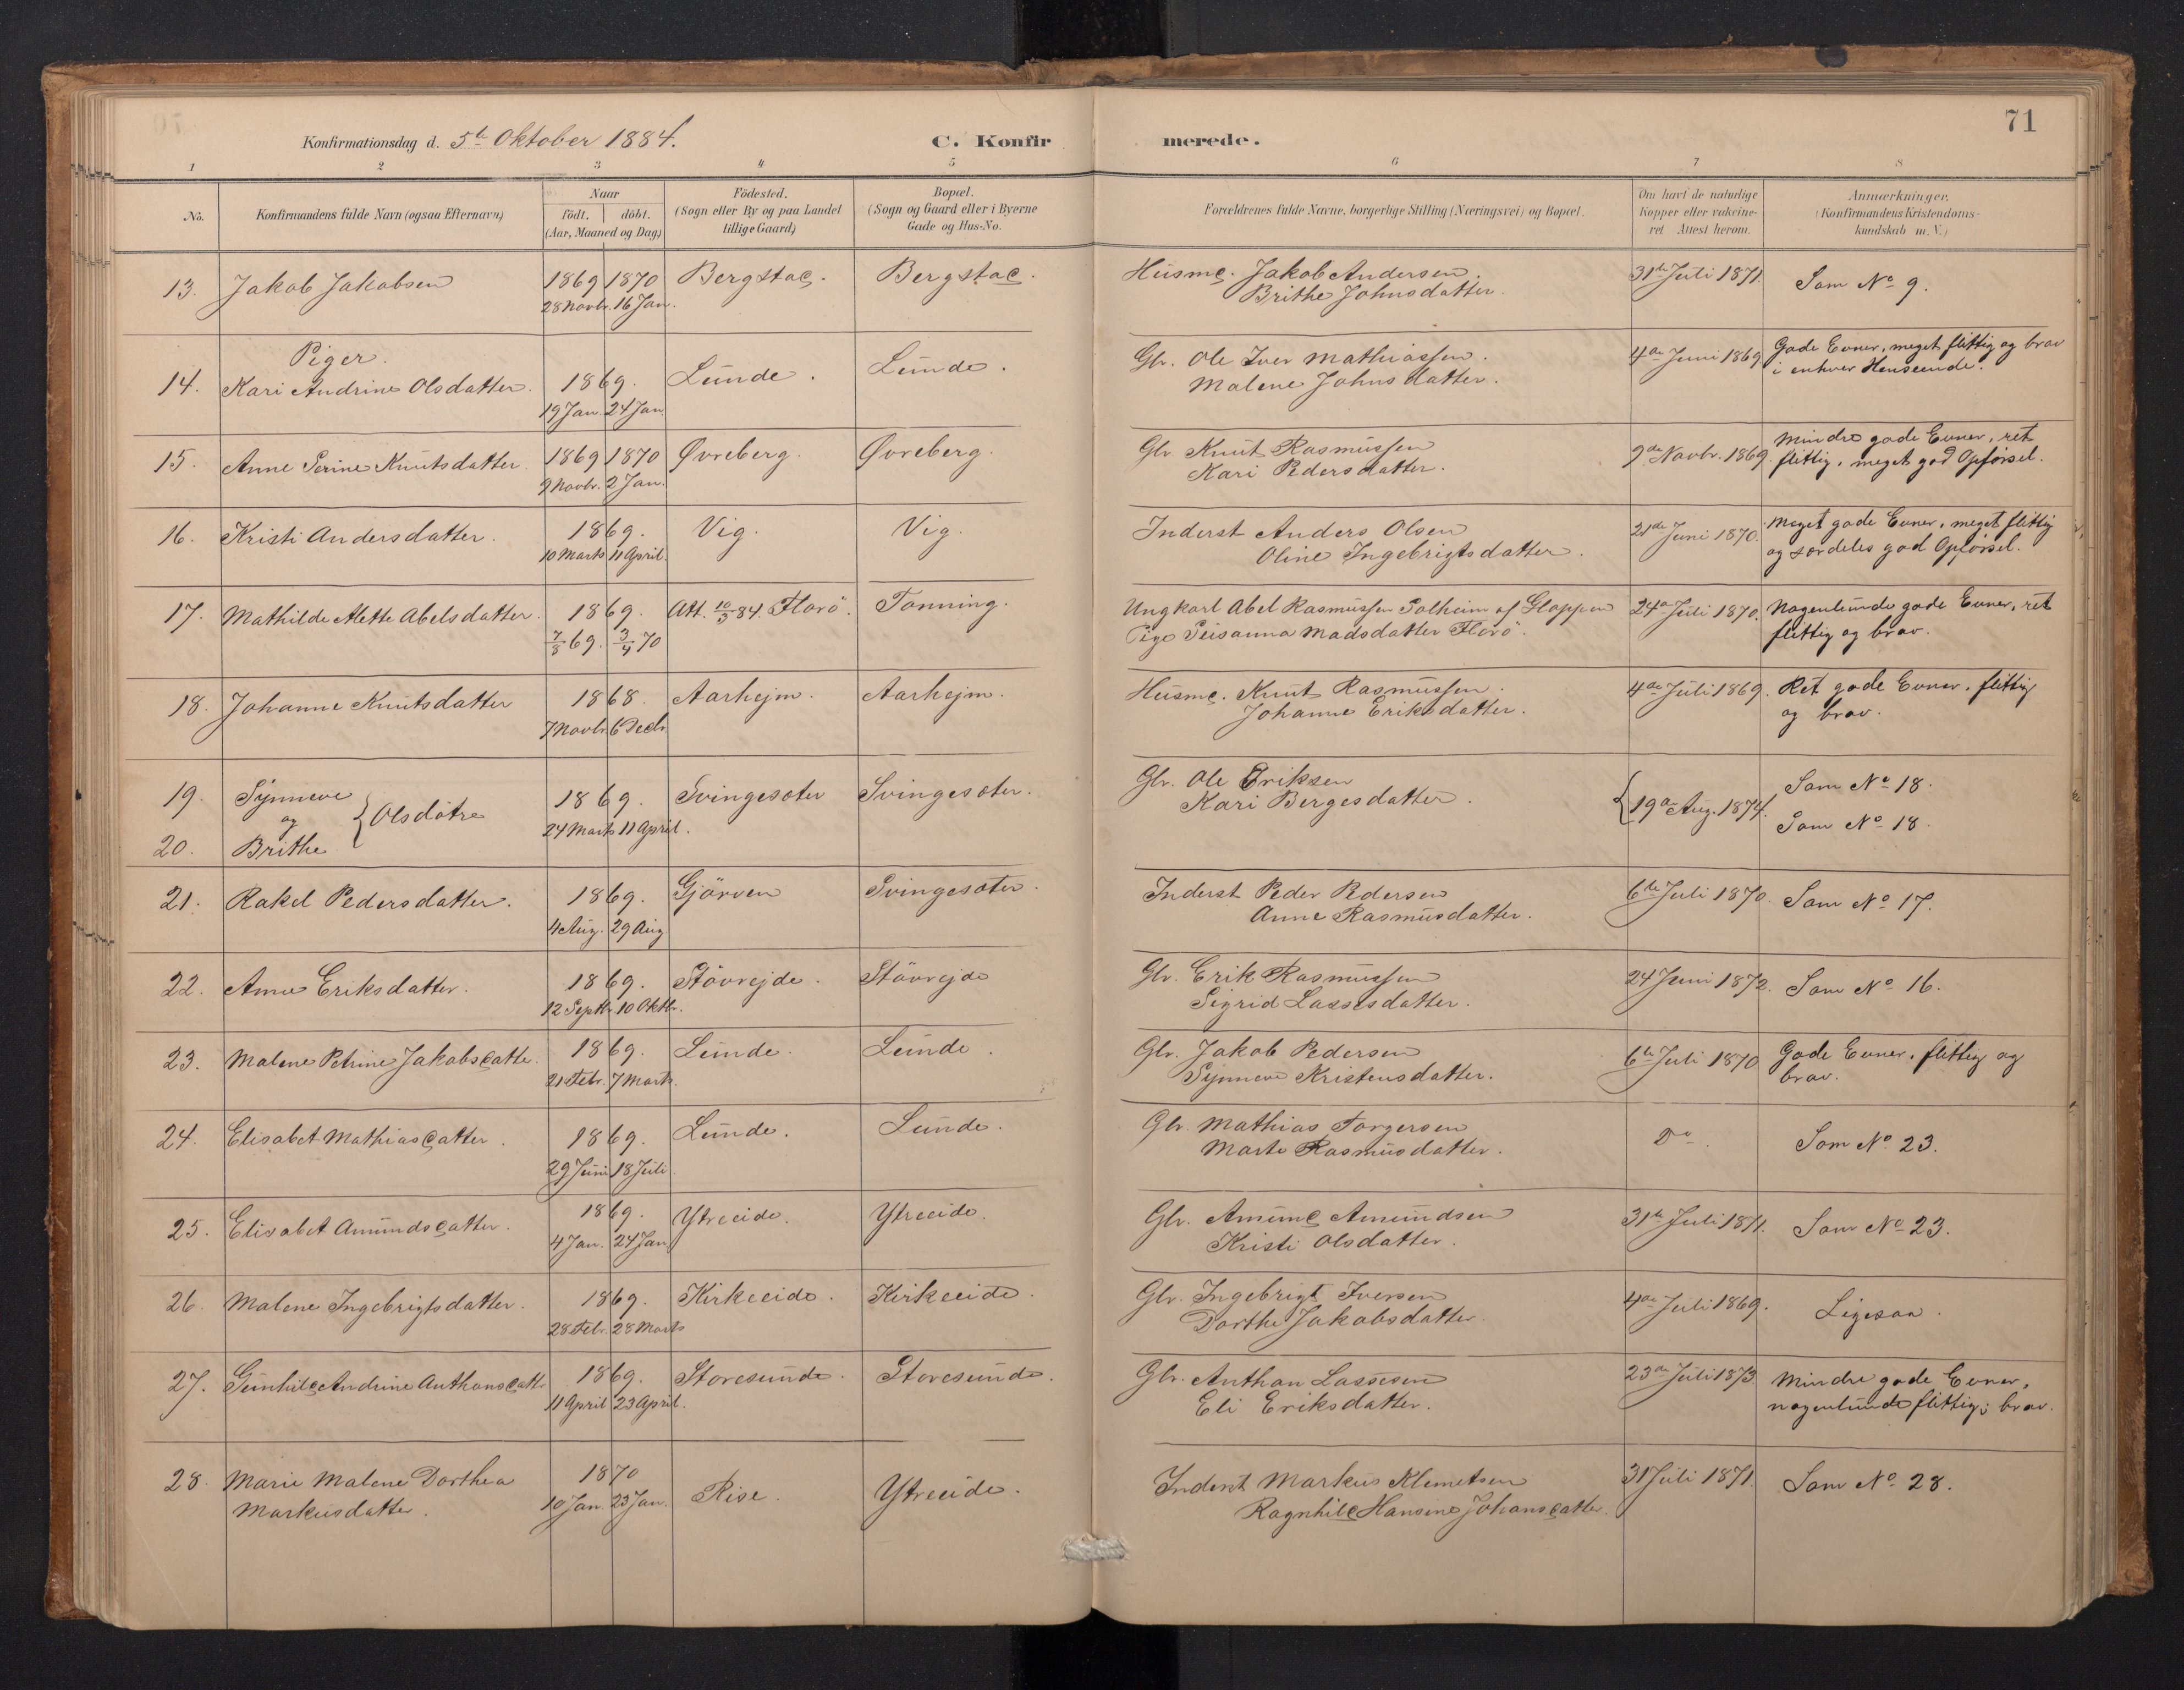 71
Konfirmationsdag d. 5te Oktober 1884.
C. Konfirmerede.
1 2 3 4 5 6 7 8
No.
Konfirmandens fulde Navn (ogsaa Efternavn)
Naar
födt. döbt.
(Aar, Maaned og Dag)
Födested.
(Sogn eller By og paa Landet
tillige Gaard)
Bopæl.
(Sogn og Gaard eller i Byerne
Gade og Hus-No.
Forældrenes fulde Navne, borgerlige Stilling (Næringsvei) og Bopæl.
Om havt de naturlige
Kopper eller vakcine-
ret Attest herom.
Anmærkninger.
(Konfirmandens Kristendoms-
kundskab m. V.)
13. Jakob Jakobsen 1869 1870 Bergstad. Bergstad. Husmd. Jakob Andersen. 31te Juli 1871. Som No 9.
28 Novbr. 16 Jan. Brithe Johnsdatter.
Piger.
14. Kari Andrine Olsdatter. 1869. Lunde. Lunde. Gbr. Ole Iver Mathiassen. 4de Juni 1869 Gode Evner, meget flittig og brav
19 Jan. 24 Jan. Malene Johnsdatter. i enhver Henseende.
15. Anne Serine Knutsdatter. 1869 1870 Øvreberg. Øvreberg. Gbr Knut Rasmussen 9de Novbr. 1869. Mindre gode Evner, ret
9 Novbr. 2 Jan. Kari Pedersdatter. flittig, meget god Opførsel.
16. Kristi Andersdatter. 1869. Vig. Vig. Inderst Anders Olsen 21de Juni 1870. Meget gode Evner, meget flittig
10 Marts 11 April. Oline Ingebrigtsdatter. og særdeles god Opførsel.
17. Mathilde Alette Abelsdatter. 1869. Att. 10/3 84. Florö. Tonning. Ungkarl Abel Rasmussen Solheim af Gloppen 24de Juli 1870. Nogenlunde gode Evner, ret
7/8 69. 3/4 70 Pige Susanna Madsdatter Florö. flittig og brav.
18. Johanne Knutsdatter 1868. Aarhejm. Aarhejm. Husmd. Knut Rasmussen. 4de Juli 1869. Ret gode Evner, flittig
7 Novbr. 6 Decbr. Johanne Eriksdatter. og brav.
19. Synneve 1869. Svingesæter Svingesæter. Gbr. Ole Eriksen Som No 18.
og { Olsdötre 24 Marts 11 April. Kari Bergesdatter. { 19de Aug. 1874.
20. Brithe Som No 18.
21. Rakel Pedersdatter. 1869. Gjörven Svingesæter. Inderst Peder Pedersen 6te Juli 1870. Som No 17.
4 Aug. 29 Aug Anne Rasmusdatter.
22. Anne Eriksdatter. 1869. Stövrejde. Stövrejde Gbr. Erik Rasmussen 24 Juni 1872. Som No 16.
12 Septbr. 10 Oktbr. Sigrid Lassesdatter.
23. Malene Petrine Jakobsdatte. 1869. Lunde. Lunde. Gbr. Jakob Pedersen 6te Juli 1870 Gode Evner, flittig og
21 Febr. 7 Marts. Synneve Kristensdatter. brav.
24. Elisabet Mathiasdatter. 1869. Lunde. Lunde. Gbr Mathias Torgersen Do. Som No 23.
29 Juni 18 Juli. Marte Rasmusdatter.
25. Elisabet Amundsdatter. 1869. Ytreeide. Ytreeide. Gbr. Amund Amundsen 31te Juli 1871. Som No 23.
4 Jan. 24 Jan. Kristi Olsdatter.
26. Malene Ingebrigtsdatter. 1869. Kirkeeide. Kirkeeide. Gbr. Ingebrigt Iversen 4de Juli 1869. Ligesaa.
28 Febr. 28 Marts Dorthe Jakobsdatter.
27. Gunhild Andrine Anthonsdattr 1869. Storesunde. Storesunde. Gbr. Anthon Lassesen 23de Juli 1873. Mindre gode Evner,
11 April 23 April. Eli Eriksdatter. nogenlunde flittig; brav.
28. Marie Malene Dorthea 1870 Rise. Ytreeide. Inderst Markus Klemetsen 31 Juli 1871. Som No 28.
Markusdatter. 10 Jan. 23 Jan. Ragnhild Hansine Johansdatter.